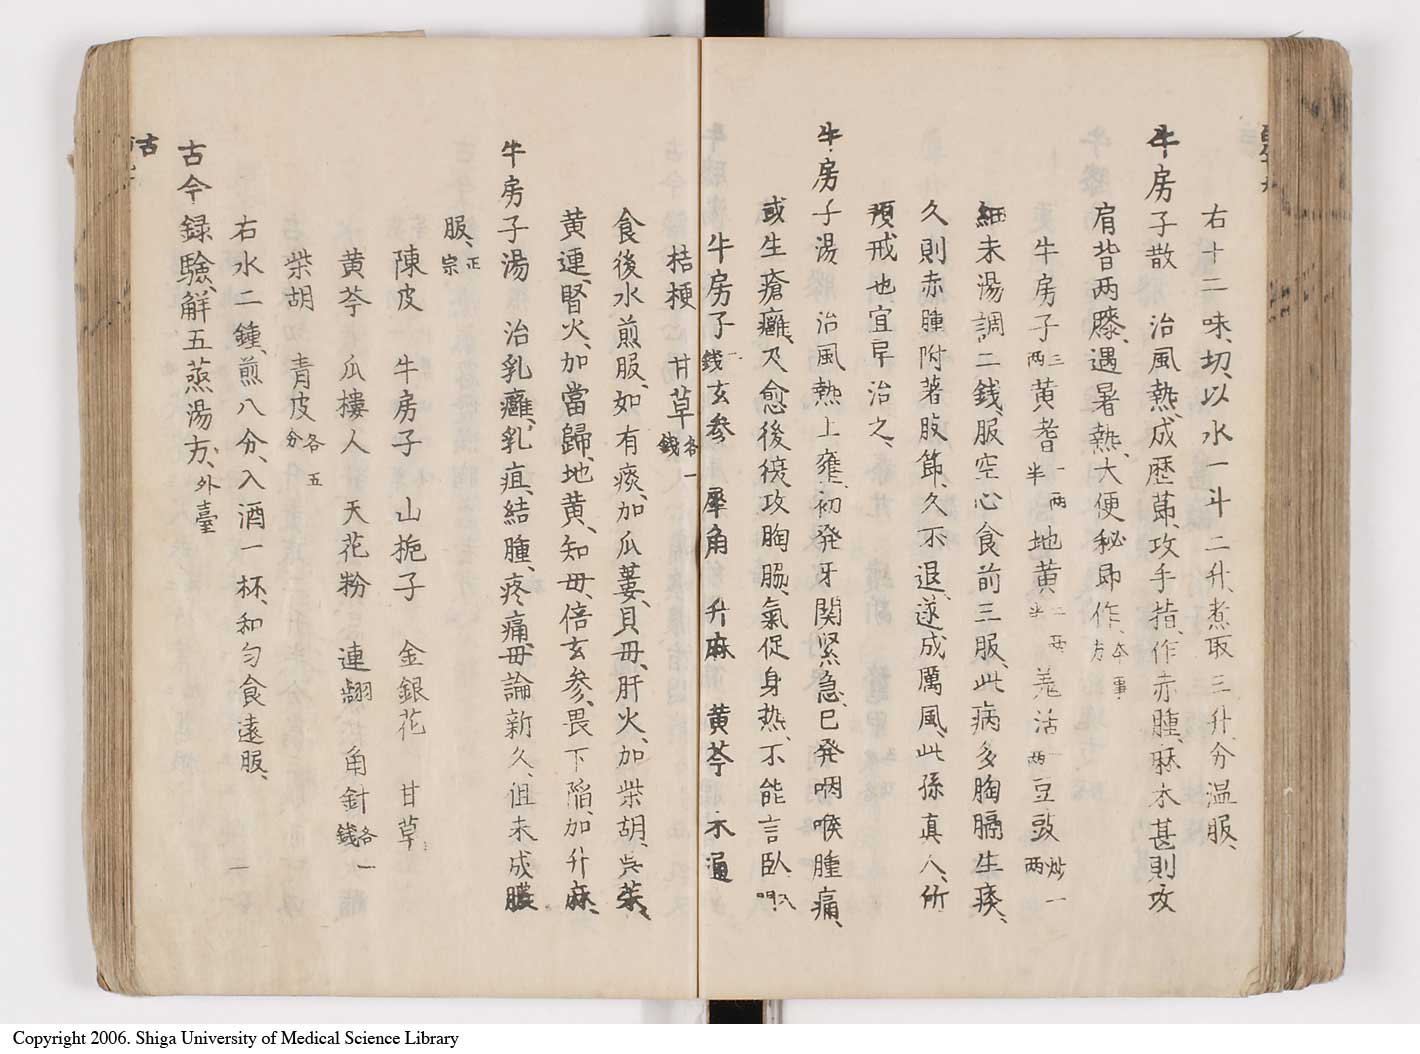 右十二味、切、以水一斗二升、煮取三升、分温服、
牛房子散 治風熱、成歴莭、攻手指、作赤腫、麻木甚則攻
肩背両膝、遇暑熱、大便秘即作、本事方
牛房子三両 黄耆一両半 地黄二両半 羗活一両 豆豉炒一両
細末湯調、二銭、服空心食前三服、此病多胸膈生痰、
久則赤腫附著肢節、久不退、遂成厲風、此孫真人、所
預戒也宜早治之、
牛房子湯 治風熱上壅、初発牙関緊急、已発咽喉腫痛、
或生瘡癰、及愈後復攻胸腸、氣促身热、不能言臥
牛房子一銭 玄参 犀角 升麻 黄芩 木通
桔梗 甘草各一銭
食後水煎服、如有痰、加瓜蔞、貝毋、肝火、加柴胡、呉茱、
黄連、腎火、加當歸、地黄、知毋、倍玄参、畏下陥、加升麻、
牛房子湯 治乳癰、乳疽、結腫、疼痛、毋論新久、但未成膿
服、正宗
陳皮 牛房子 山梔子 金銀花 甘草
黄芩 瓜樓人 天花粉 連翹 角針各一銭
柴胡 青皮各五分
右水二鍾、煎八分、入酒一杯、和匀食遠服、
古今録驗、解五蒸湯方、外臺
古